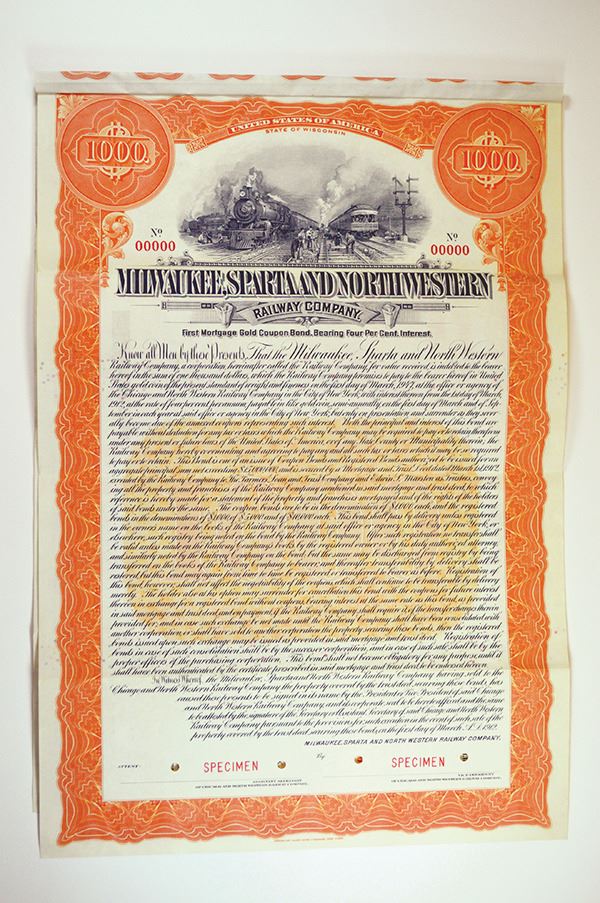 UNITED STATES OF AMERICA
STATE OF WISCONSIN
1000.
1000.
No
00000
No
00000
MILWAUKEE, SPARTA AND NORTH WESTERN
RAILWAY COMPANY.
First Mortgage Gold Coupon Bond, Bearing Four Per Cent. Interest.
Know all Men by these Presents, That the Milwaukee, Sparta and North Western
Railway Company, a corporation, hereinafter called the Railway Company, for value received is indebted to the bearer
hereof in the sum of one thousand dollars, which the Railway Company promises to pay to the bearer hereof in United
States gold coin of the present standard of weight and fineness on the first day of March, 1947, at the office or agency of
the Chicago and North Western Railway Company in the City of New York, with interest thereon from the first day of March,
1912, at the rate of four per cent per annum, payable in like gold coin, semi-annually, on the first days of March and Sep-
tember in each year at said office or agency in the City of New York, but only on presentation and surrender as they sever-
ally become due of the annexed coupons representing such interest. Both the principal and interest of this bond are
payable without deduction for any tax or taxes which the Railway Company may be required to pay or retain therefrom
under any present or future laws of the United States of America, or of any State, County or Municipality therein, the
Railway Company hereby covenanting and agreeing to pay any and all such tax or taxes which it may be so required
to pay or to retain. This bond is one of an issue of Coupon Bonds and Registered Bonds
aggregate principal sum not exceeding $15,000,000, and is secured by a Mortgage and Trust Deed dated March 1st, 1912,
executed by the Railway Company to The Farmers' Loan and Trust Company and Edwin S. Marston as Trustees, convey-
ing all the property and franchises of the Railway Company mentioned in said mortgage and trust deed, to which
reference is hereby made for a statement of the property and franchises mortgaged and of the rights of the holders
of said bonds under the same. The coupon bonds are to be in the denomination of $1,000 each, and the registered
bonds in the denominations of $1,000 of $5,000 and of $10,000 each. This bond shall pass by delivery unless registered
in the owner's name on the books of the Railway Company at said office or agency in the City of New York, or
elsewhere, such registry being noted on the bond by the Railway Company. After such registration no transfer shall
be valid unless made on the Railway Company's books by the registered owner or by his duly authorized attorney,
and similarly noted by the Railway Company on the bond; but the same may be discharged from registry by being
transferred on the books of the Railway Company to bearer, and thereafter transferability by delivery shall be
restored, but this bond may again from time to time be registered or transferred to bearer as before. Registration of
this bond, however, shall not affect the negotiability of the coupons, which shall continue to be transferable by delivery
merely. The holder also at his option may surrender for cancellation this bond with the coupons for future interest
thereon in exchange for a registered bond without coupons, bearing interest at the same rate as this bond, as provided
in said mortgage and trust deed and on payment, if the Railway Company shall require it, of the transfer charges therein
provided for; and in case such exchange be not made until the Railway Company shall have been consolidated with
another corporation, or shall have sold to another corporation the property securing these bonds, then the registered
bonds issued upon such exchange may be issued as provided in said mortgage and trust deed. Registration of
bonds in case of such consolidation shall be by the successor corporation, and in case of such sale shall be by the
proper officers of the purchasing corporation. This bond shall not become obligatory for any purpose until it
shall have been authenticated by the certificate prescribed in said mortgage and trust deed to be indorsed hereon.
In Witness Whereof, the Milwaukee, Sparta and North Western Railway Company, having sold to the
Chicago and North Western Railway Company the property covered by the trust deed securing these bonds, has
caused these presents to be signed in its name by the President or Vice President of said Chicago
and North Western Railway Company, and its corporate seal to be hereto affixed, and the same
to be attested by the signature of the Secretary or Assistant Secretary of said Chicago and North Western
Railway Company, pursuant to the provisions for such execution in the event of such sale of the
property covered by the trust deed, securing these bonds, on the first day of March, A. D. 1912.
MILWAUKEE, SPARTA AND NORTH WESTERN RAILWAY COMPANY,
ATTEST:
SPECIMEN
By
SPECIMEN
ASSISTANT SECRETARY
OF CHICAGO AND NORTH WESTERN RAILWAY COMPANY.
VICE PRESIDENT
OF CHICAGO AND NORTH WESTERN RAILWAY COMPANY.